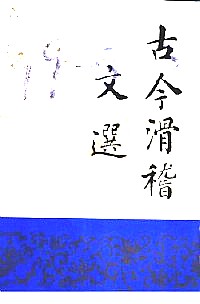 古今滑稽
文選